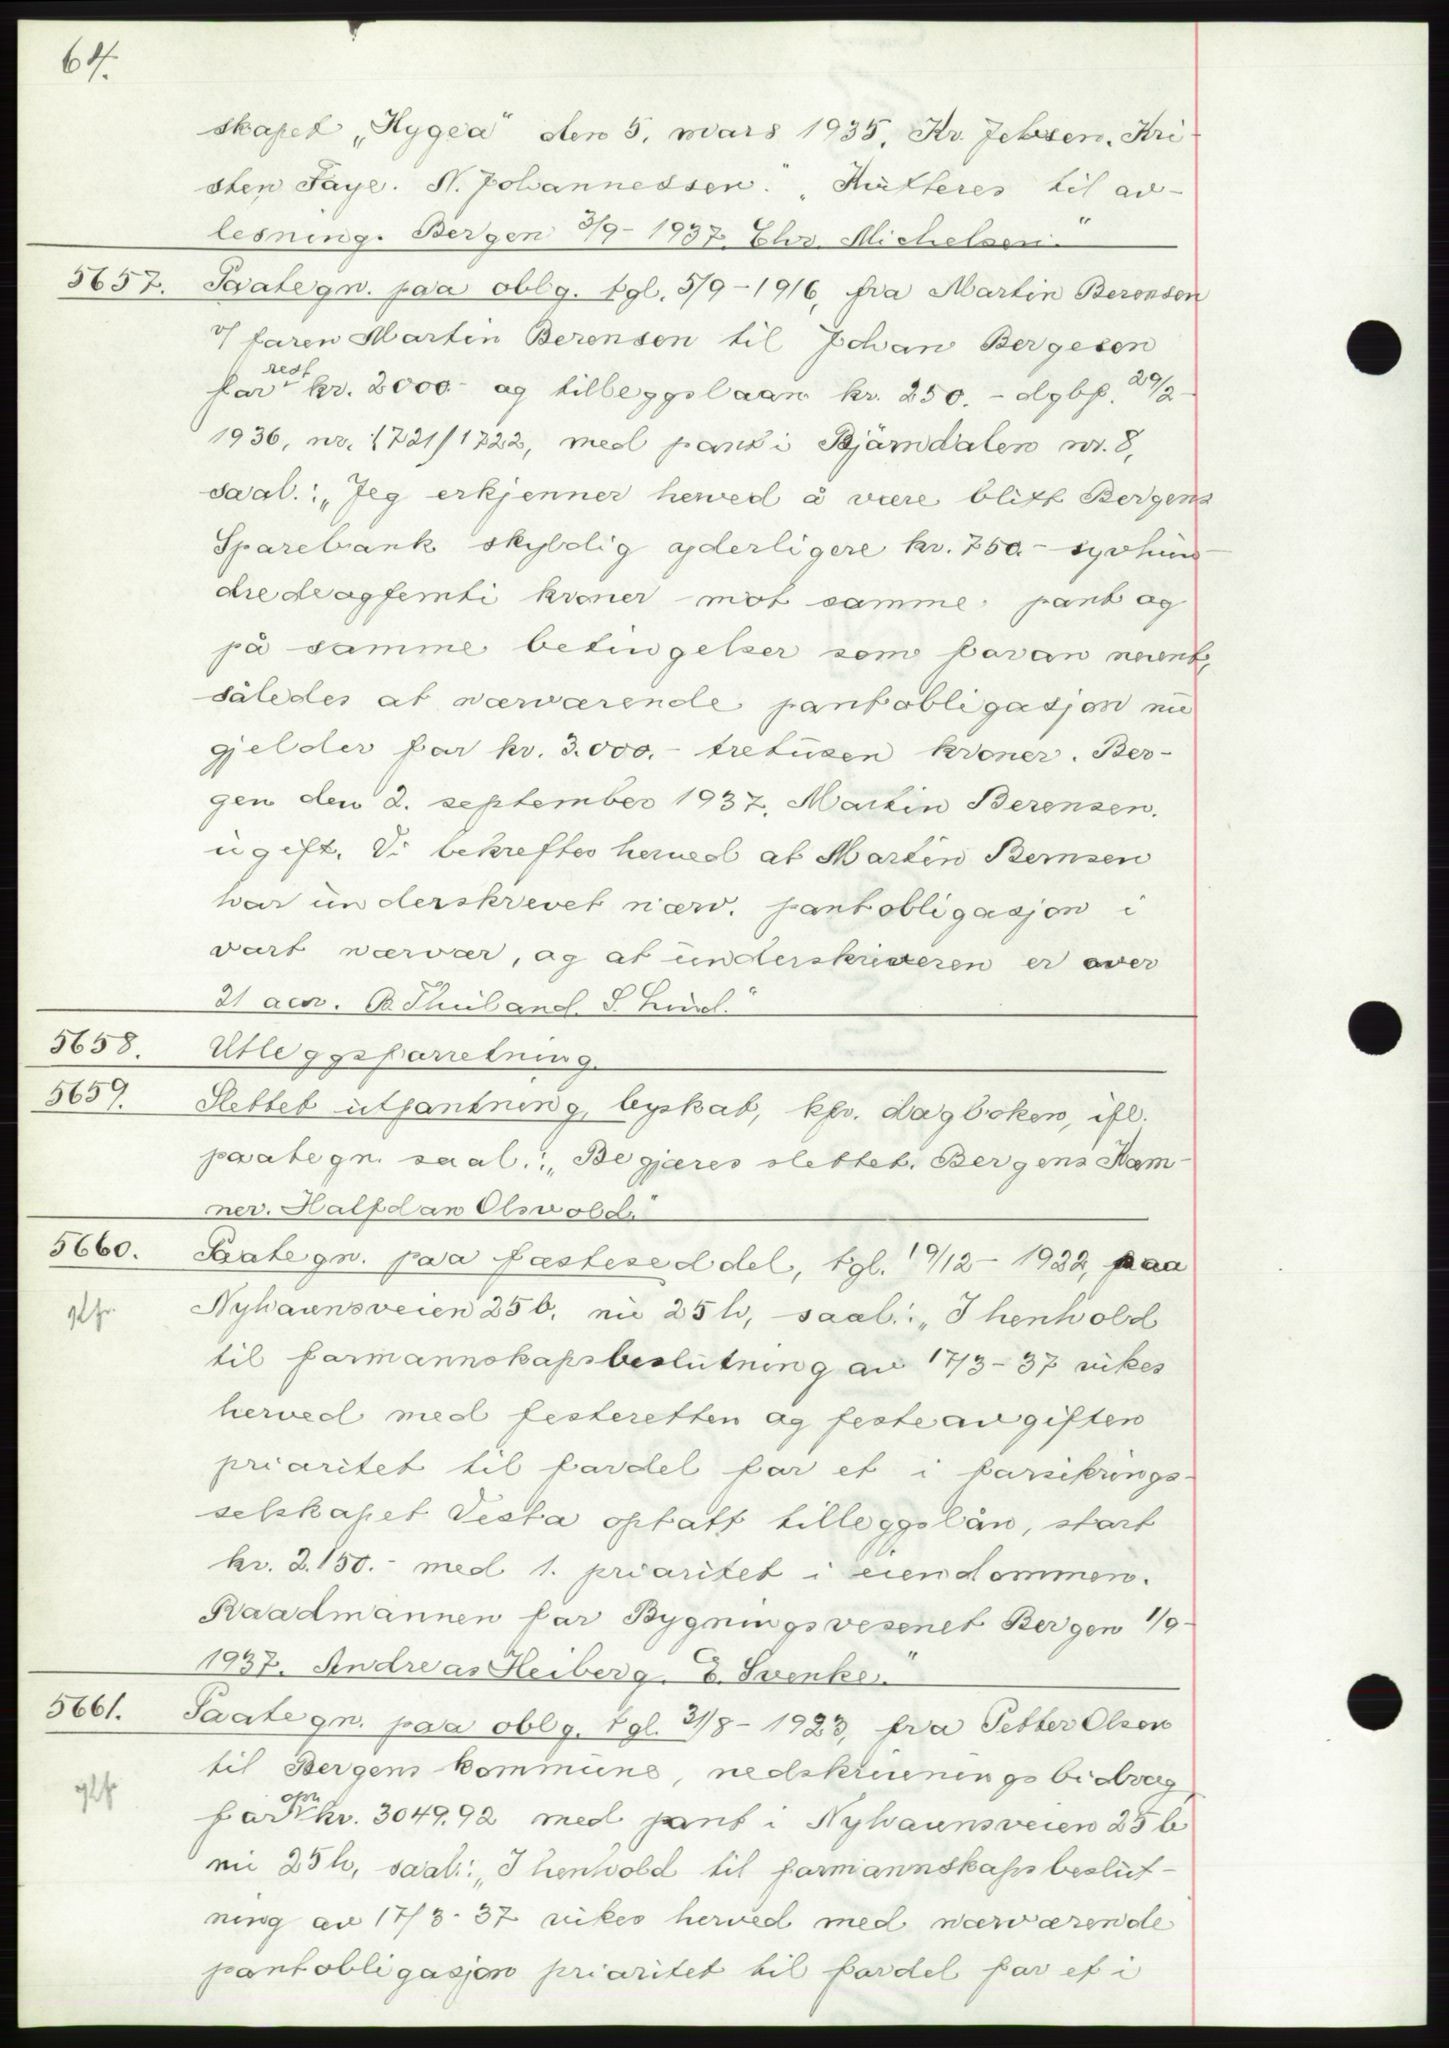 64.
skapet „Hygea" den 5. mars 1935. Kr. Jebsen. Kri-
sten Faye. N. Johannessen." „Kvitteres til av-
lesning. Bergen 3/9-1937. Chr. Michelsen."
5657. Paategn. paa oblg. tgl. 5/9-1916, fra Martin Berensen
v/ faren Martin Berensen til Johan Bergesen
rest
for kr. 2000.- og tilleggslaan kr. 250.- dgbf. 29/2-
1936, nr. 1721/1722, med pant i Bjørndalen nr. 8,
saal.: „Jeg erkjenner herved å være blitt Bergens
Sparebank skyldig yderligere kr. 750.- syvhun-
dredeogfemti kroner mot samme pant og
på samme betingelser som foran nevnt,
således at nærværende pantobligasjon nu
gjelder for kr. 3.000.- tretusen kroner. Ber-
gen den 2. september 1937. Martin Berensen.
ugift. Vi bekrefter herved at Martin Bernsen
har underskrevet nærv. pantobligasjon i
vårt nærvær, og at underskriveren er over
21 aar. B. Thuland. S. Lund."
5658. Utleggsforretning.
5659. Slettet utpantning, byskat, kfr. dagboken, ifl.
paategn. saal.: „Begjæres slettet. Bergens Kem-
ner. Halfdan Olsvold."
5660. Paategn. paa festeseddel, tgl. 19/12-1922, paa
Nyhavnsveien 25b, nu 25h, saal.: „I henhold
til formannskapsbeslutning av 17/3-37 vikes
herved med festeretten og festeavgiften
prioritet til fordel for et i forsikrings-
selskapet Vesta optatt tilleggslån, stort
kr. 2.150.- med 1. prioritet i eiendommen.
Raadmannen for Bygningsvesenet Bergen 1/9-
1937. Andreas Heiberg. E. Svenke."
5661. Paategn. paa oblg. tgl. 31/8-1923, fra Petter Olsen
til Bergens kommune, nedskrivningsbidrag,
opr.
for kr. 3049.92 med pant i Nyhavnsveien 25b
nu 25h, saal.: „I henhold til formannskapsbeslut-
ning av 17/3-37 vikes herved med nærværende
pantobligasjon prioritet til fordel for et i